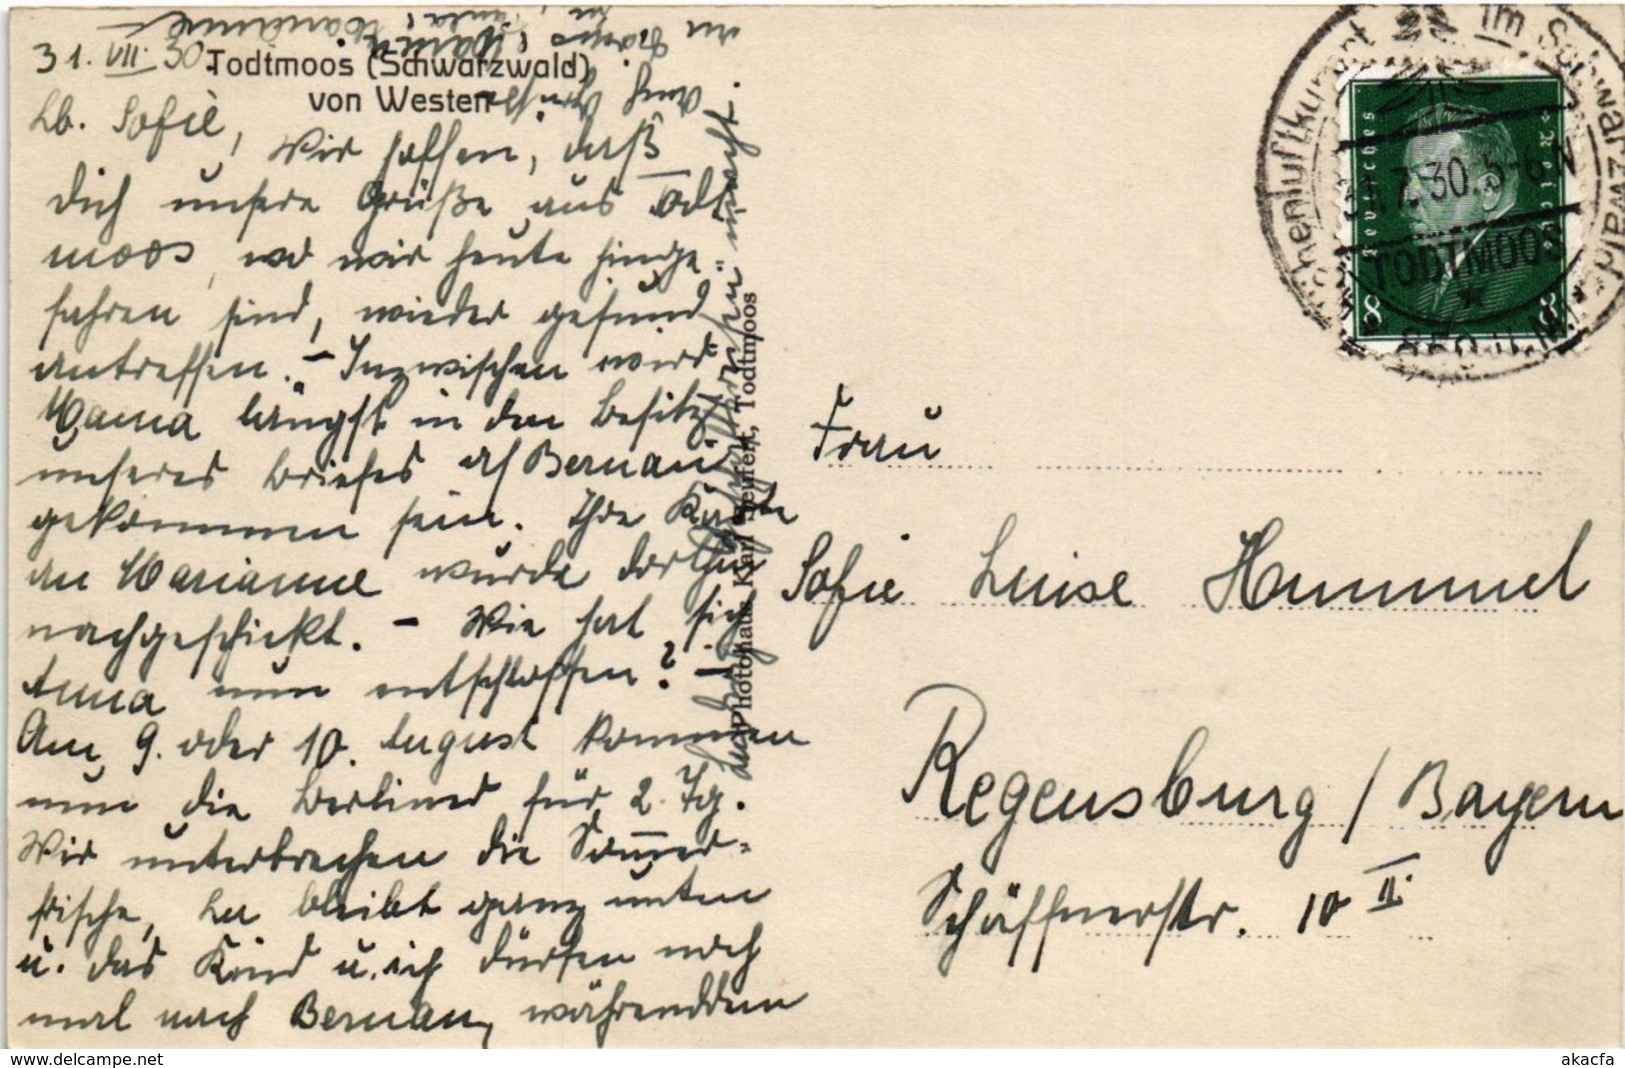 31. VII. 30.
Todtmoos (Schwarzwald)
von Westen
Lb. Sofie,
Wir hoffen, daß
Dich unsere Grüße aus Todt
moos, wo wir heute hinge-
fahren sind, wieder gesund
antreffen. – Inzwischen wird
Mama längst in den Besitz
unseres Briefes aus Bernau
gekommen sein. Ihre Karte
an Marianne wurde dorthin
nachgeschickt. – Wie hat sich
Anna nun entschlossen? –
Am 9. oder 10. August kommen
nun die Berliner für 2 Tg.
Wir unterbrechen die Sommer-
frische, Lu bleibt ganz unten
u. das Kind u. ich dürfen noch
mal nach Bernau, währenddem
Photohaus Karl Seufert, Todtmoos
Frau
Sofie Luise Hummel
Regensburg / Bayern
Schäffnerstr. 10 II.
Deutsches Reich
8 8
Höhenluftkurort im Schwarzwald
31.7.30. 5-6 N
TODTMOOS
akpool.de
akacfa